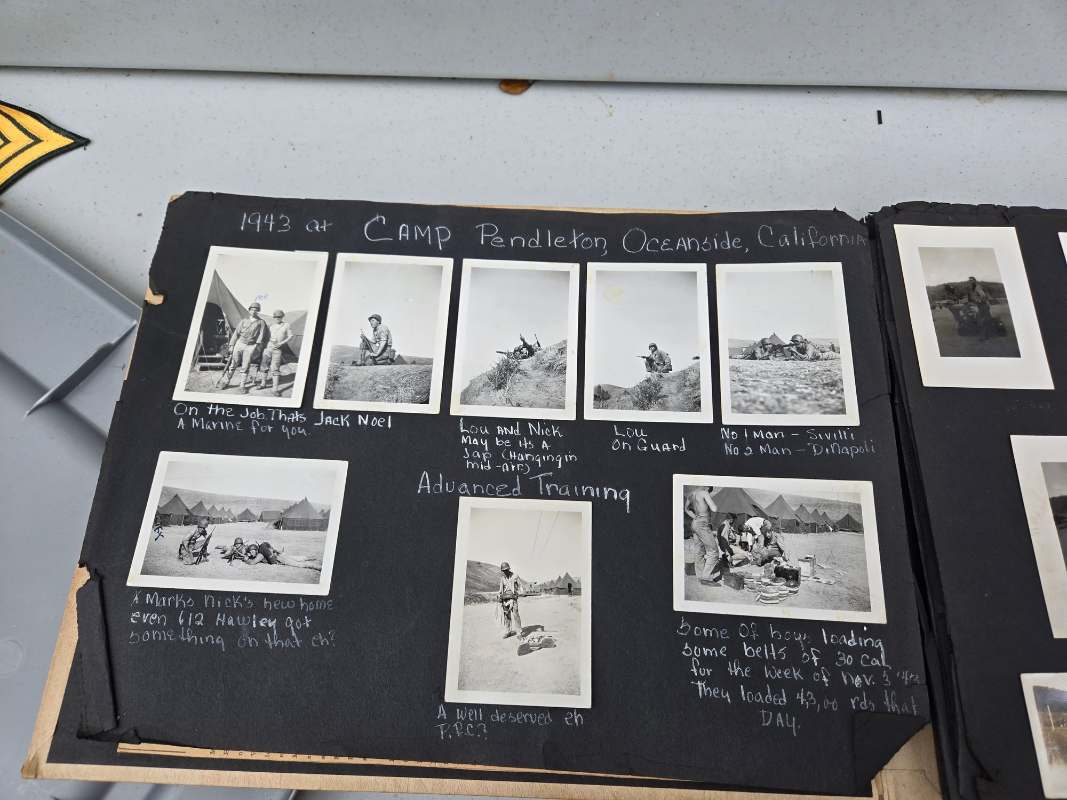 1943 at CAMP Pendleton, Oceanside, California
On the Job. Thats Jack Noel
A Marine for you.
Lou AND Nick
May be its A
Jap (Hanging in
mid-air)
Lou
On Guard
No 1 Man - Sivilli
No 2 Man - DiNapoli
Advanced Training
X Marks Nick's new home
even 612 Hawley got
something on that eh?
A well deserved eh
P.F.C.?
Some of boys loading
some belts of 30 Cal
for the week of Nov. 3
They loaded 43,00 rds that
DAY.